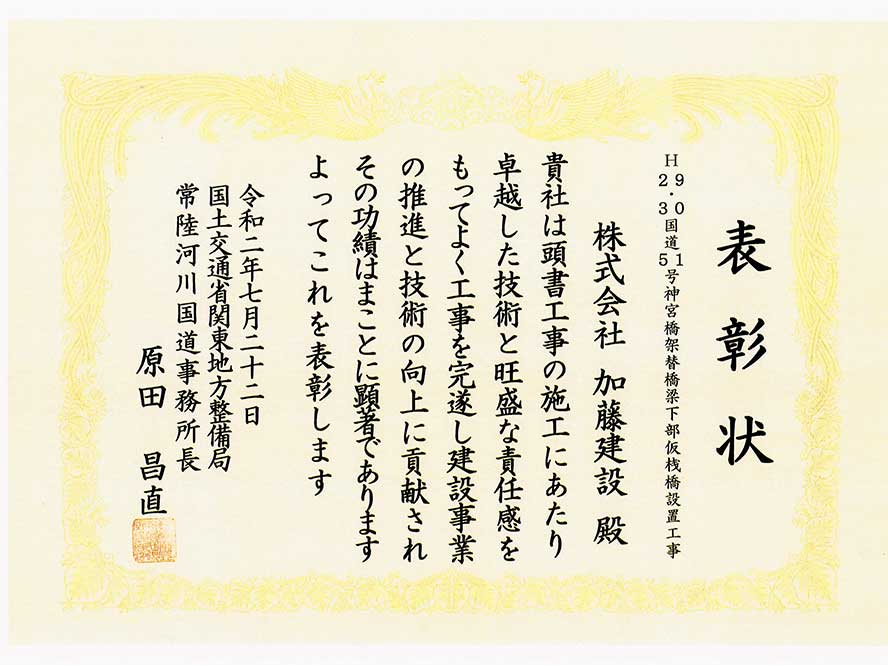 表彰状
H29・30国道51号神宮橋架替橋梁下部仮桟橋設置工事
株式会社 加藤建設 殿
貴社は頭書工事の施工にあたり
卓越した技術と旺盛な責任感を
もってよく工事を完遂し建設事業
の推進と技術の向上に貢献され
その功績はまことに顕著であります
よってこれを表彰します
令和二年七月二十二日
国土交通省関東地方整備局
常陸河川国道事務所長
原田 昌直